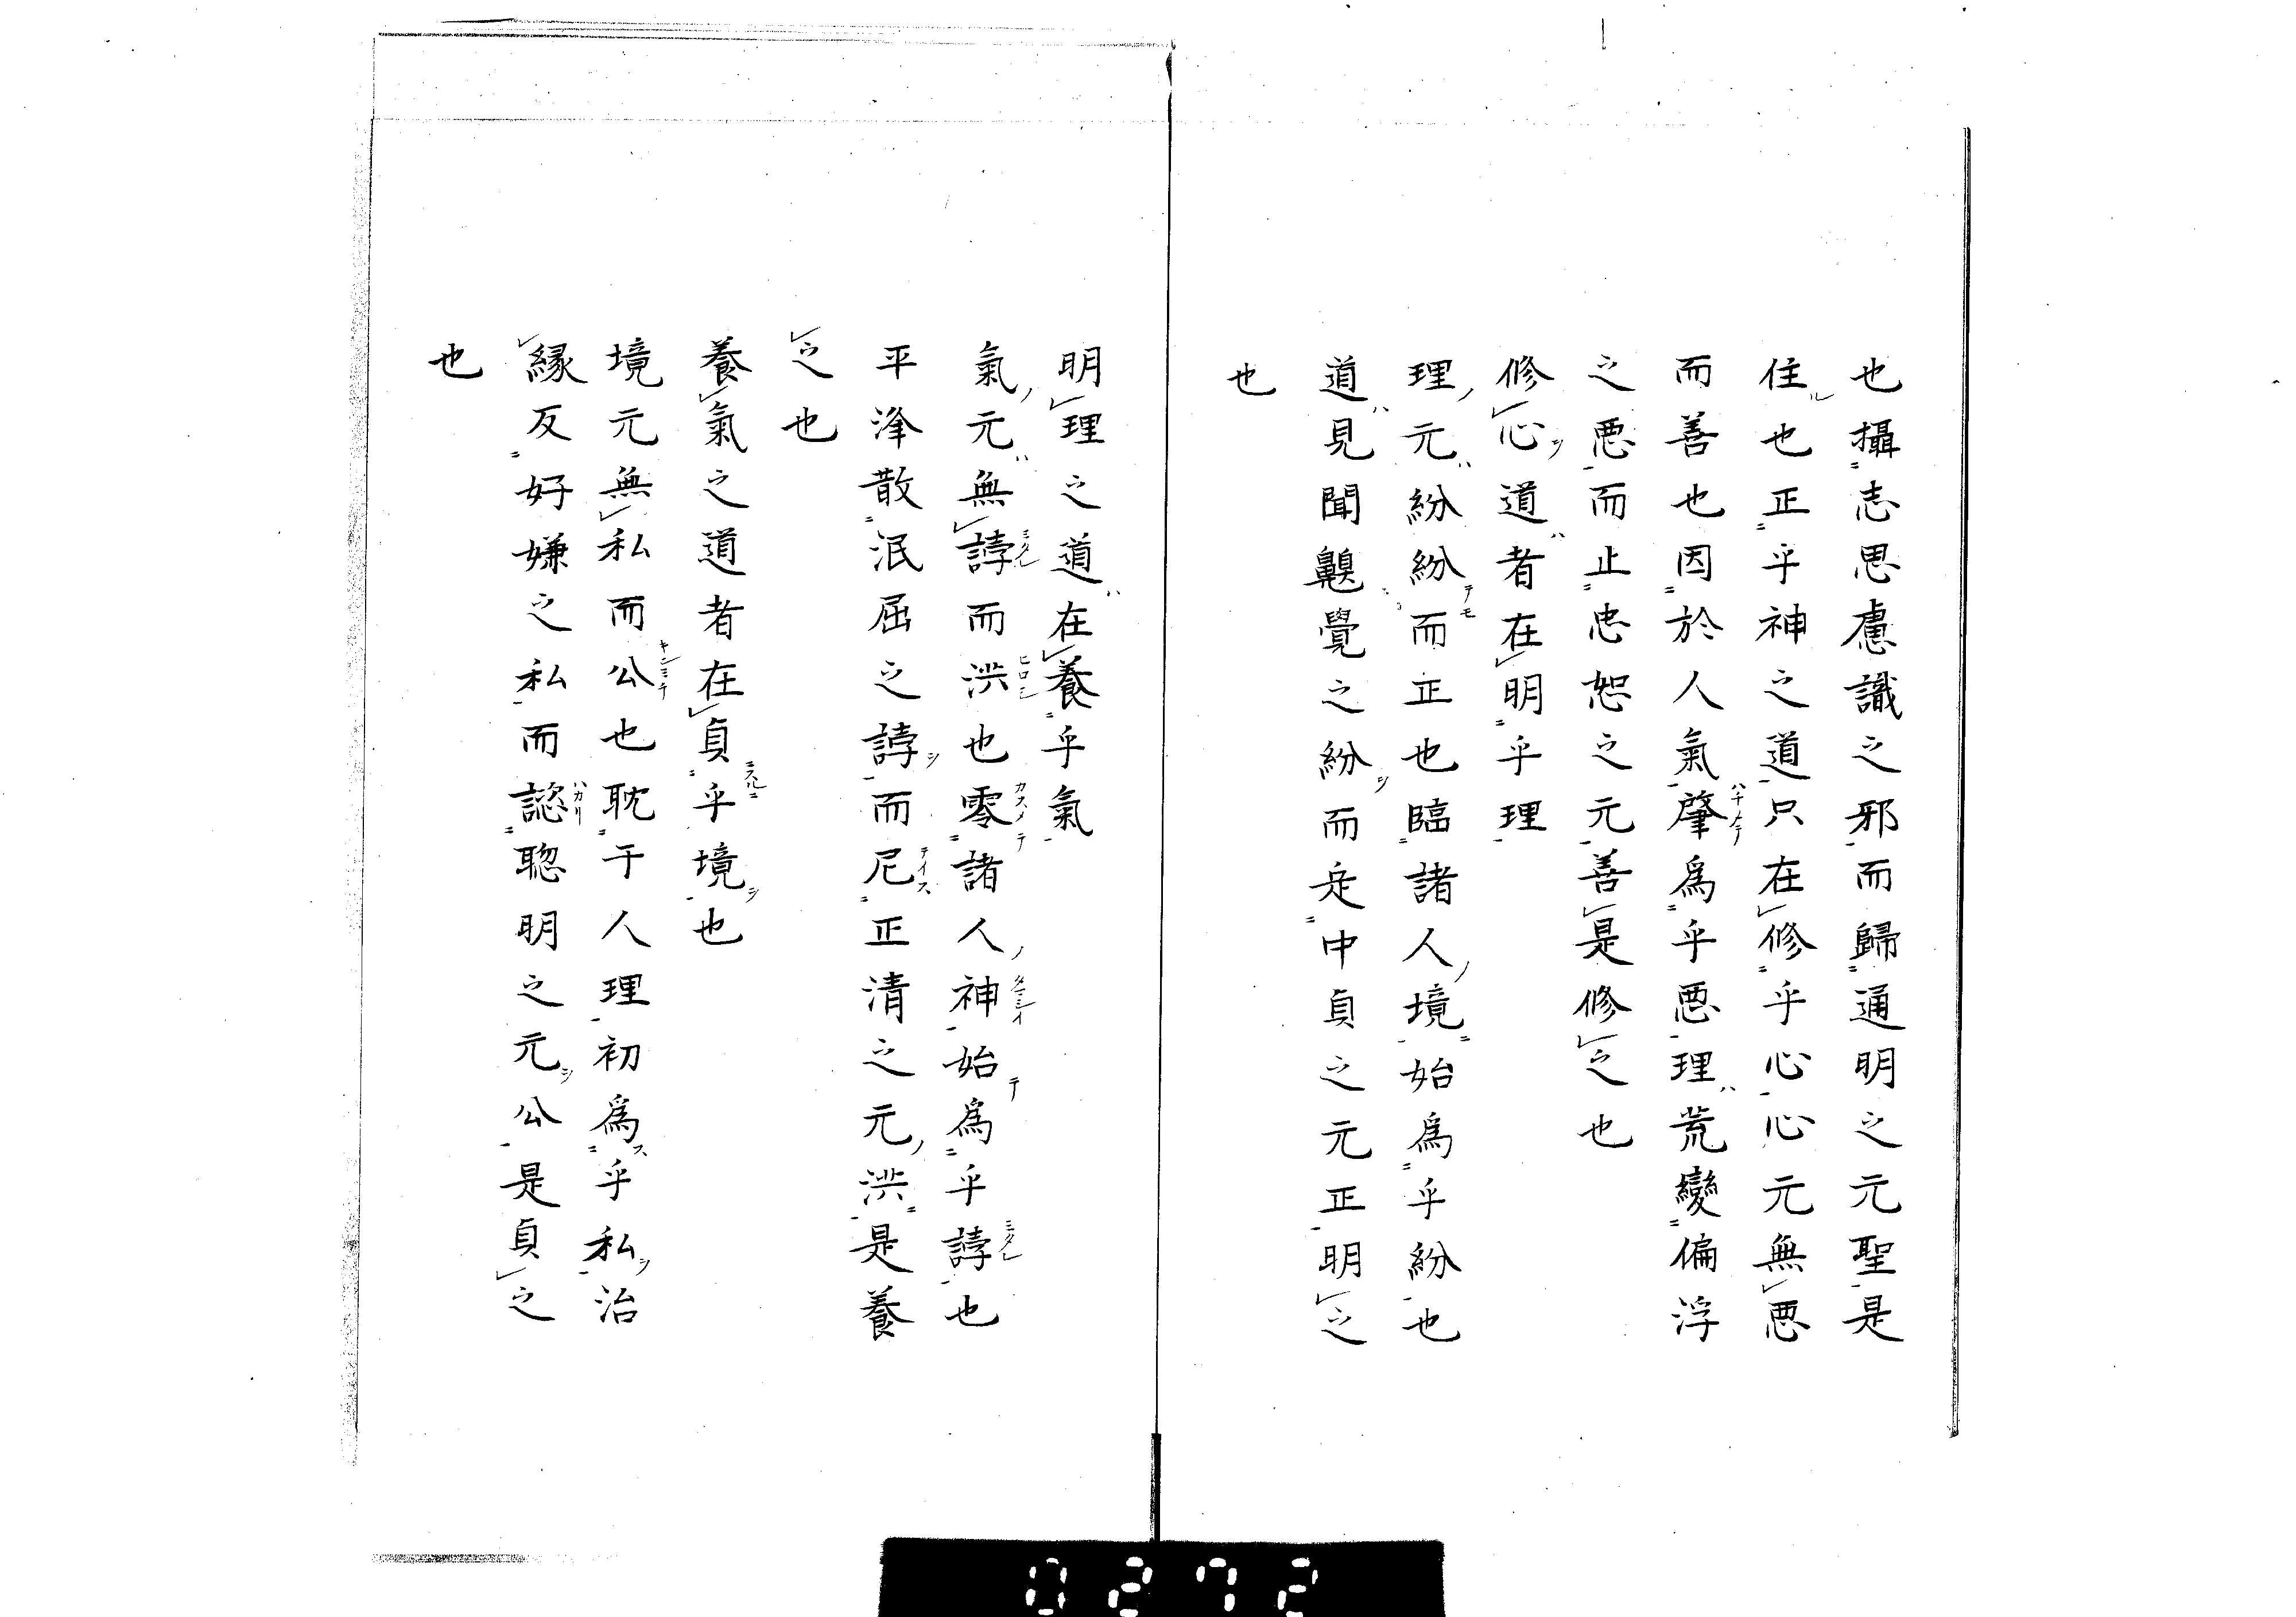 也攝志思慮識之邪而歸通明之元聖是
住也正乎神之道只在修乎心心元無悪
而善也因於人氣肇爲乎悪理荒變偏浮
之悪而止忠恕之元善是修之也
修心道者在明乎理
理元紛紛而正也臨諸人境始爲乎紛也
道見聞齅覺之紛而是中貞之元正明之
也
明理之道在養乎氣
氣元無誟而洪也零諸人神始爲乎誟也
平浲散泯屈之誟而尼正清之元洪是養
之也
養氣之道者在貞乎境也
境元無私而公也耽于人理初爲乎私治
縁反好嫌之私而認聡明之元公是貞之
也
0272